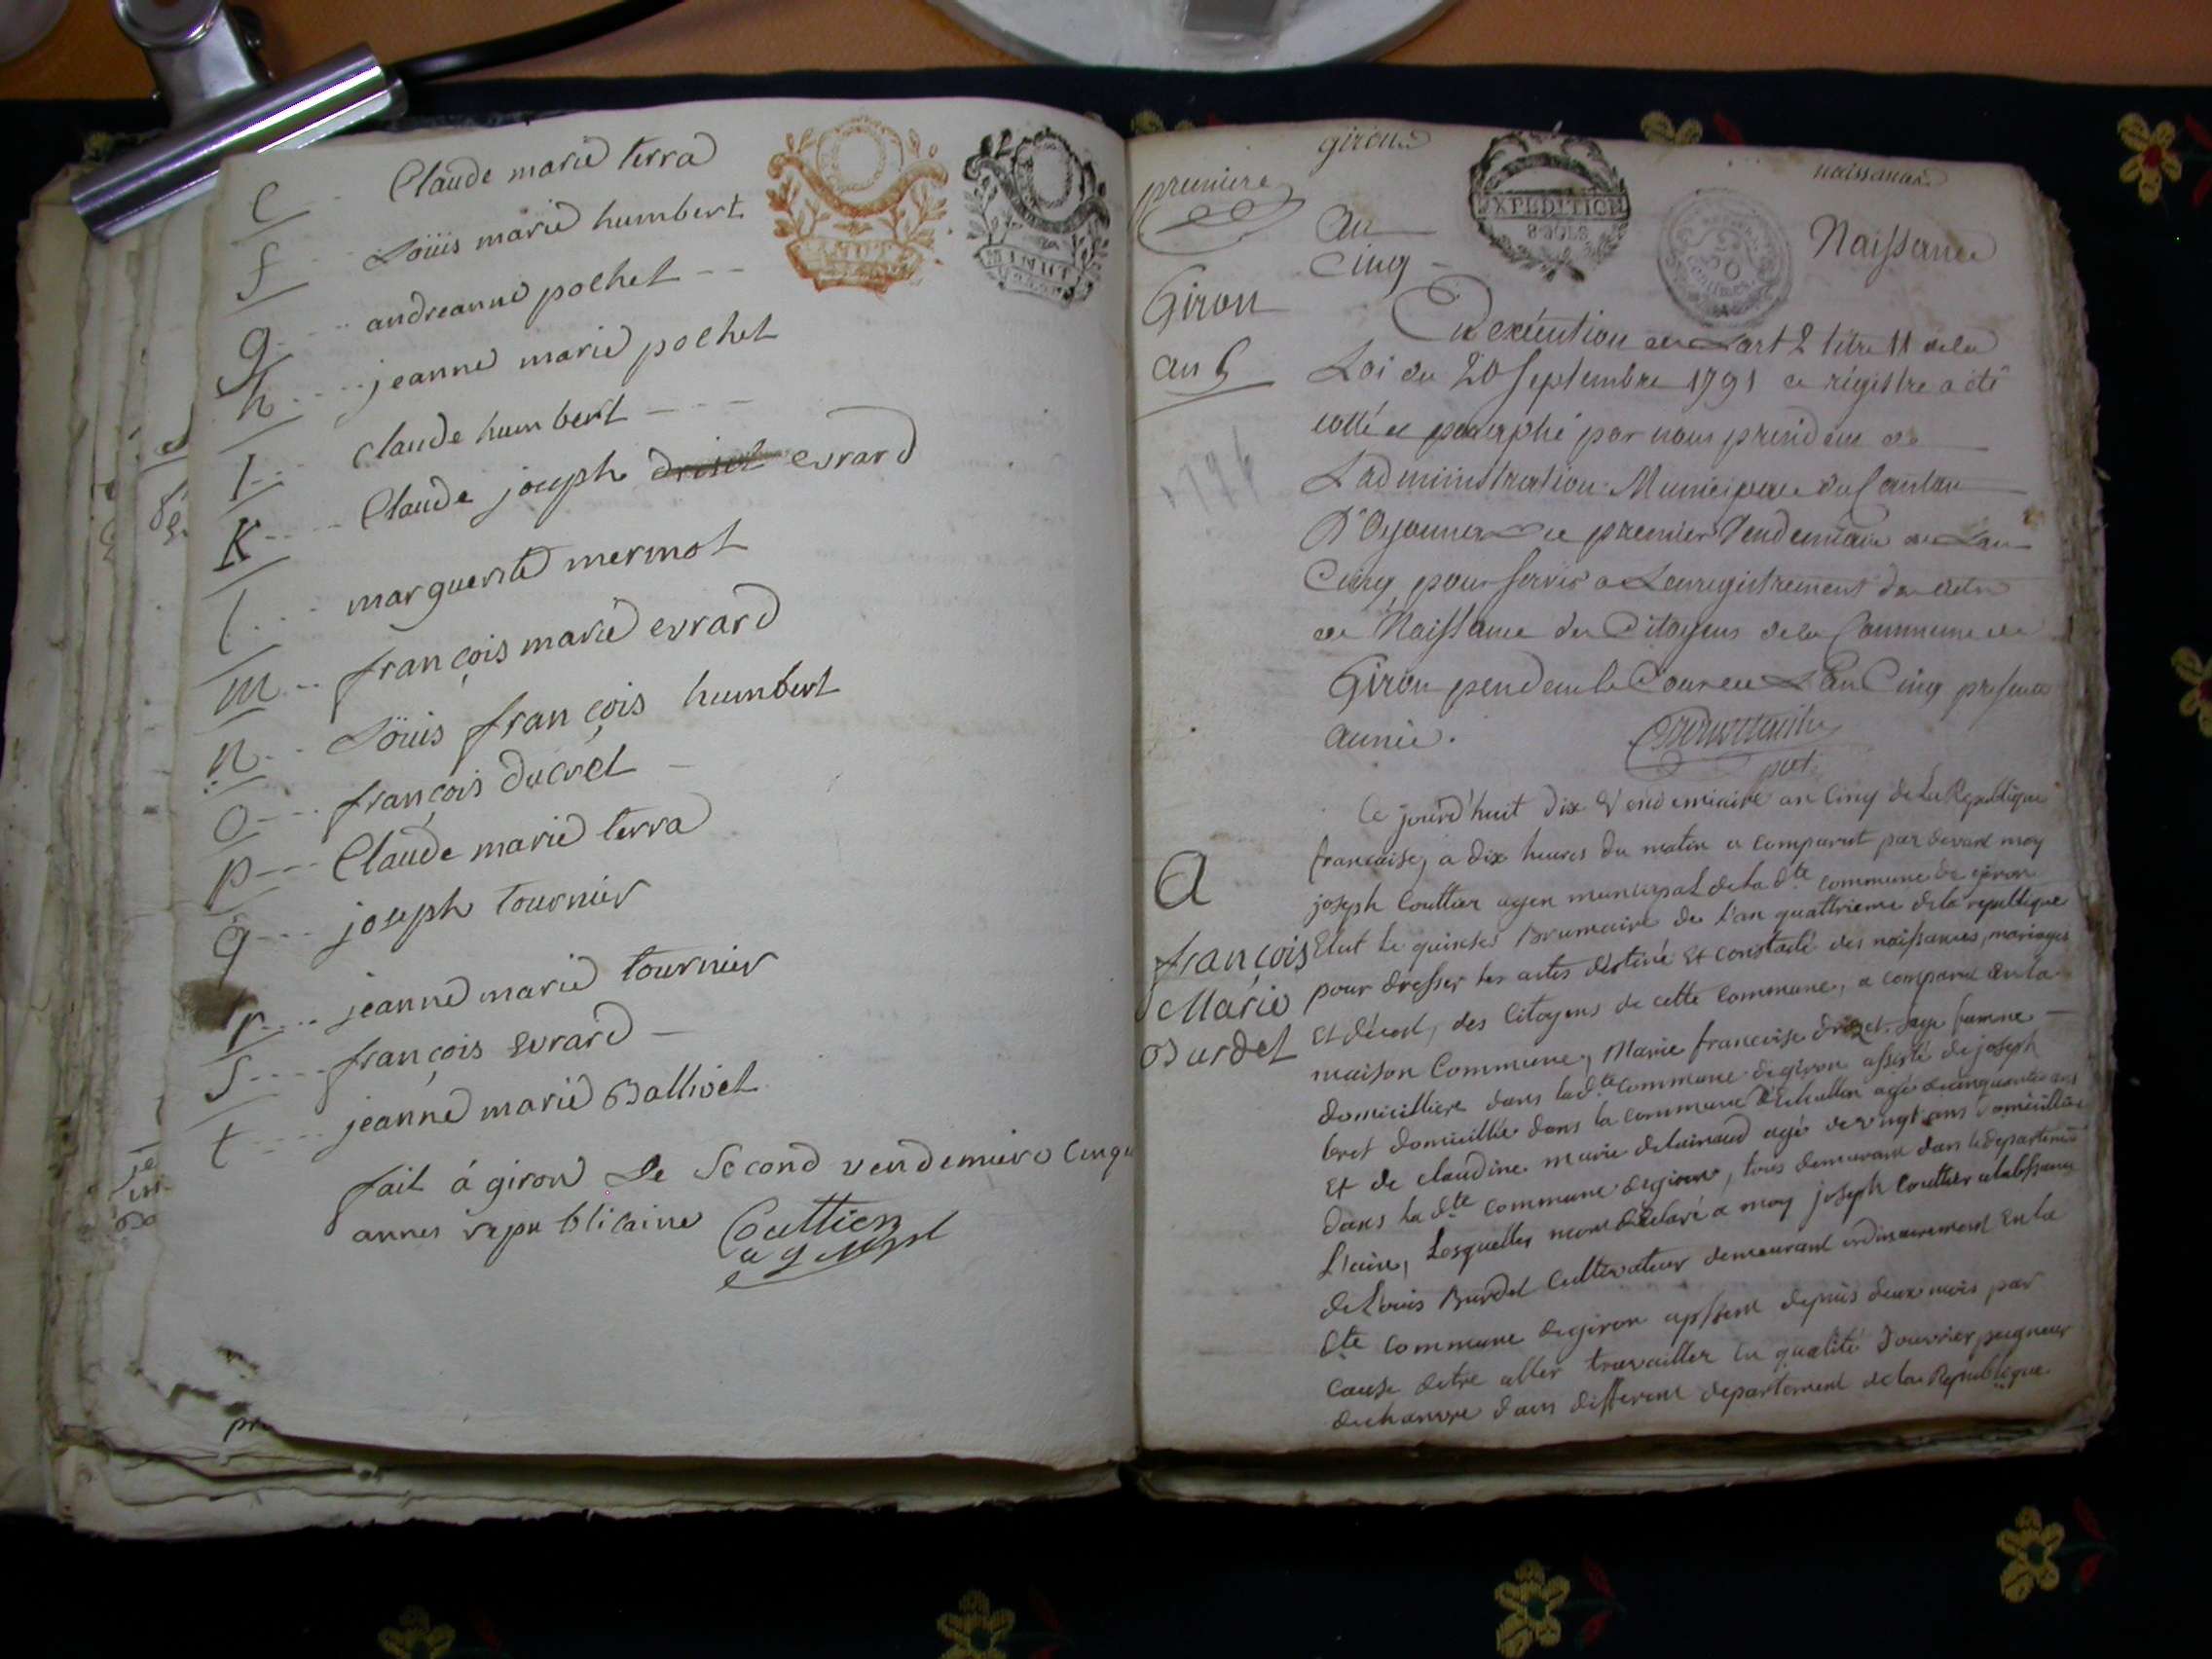 e Claude marie terra
f Loüis marie humbert
g andreanne pochet
h jeanne marie pochet
I claude humbert
K Claude joseph evrard
l marguerite mermot
m françois marie evrard
n Loüis françois humbert
o françois ducret
p Claude marie terra
q joseph tournier
r jeanne marie tournier
s françois Evrard
t jeanne marie Ballivet
fait á giron Le Second vendemiere Cinqu
annes republicaine Couttier
giron
naissance
premiere
an
Cinq
EXPEDITION
8 SOLS
Naissance
Giron
an 5
En exécution de Lart 2 titre 11 de la
Loi du 20 Septembre 1791 ce régistre a été
cotté et paraphé par nous président de
L'administration Municipale du Canton
D'Oyonnax le premier Vendemiaire de L'an
Cinq, pour servir a Lenregistrement des actes
de Naissance des Citoyens de la Commune de
Giron pendant le Cour de L'an Cinq presente
année.
pdt
Ce jourd'huit dix Vendemiaire an Cinq de La Republique
francaise, a dix heures du matin a comparut par devant moy
A
joseph Couttier agen municipal de la dte commune de giron
Elut le quinses Brumaire de l'an quattrieme de la republique
françois
pour dresser les actes déstiné Et constaté des naissances, mariages
Marie
Et décest, des Citoyens de cette Commune, a comparut en la
Burdet
maison Commune, Marie francoise drozet sage famme
domicilliere dans la dte Commune de giron assisté de joseph
bret domicillié dans la commune d'Echallon agé de cinquante ans
Et de claudine marie delainaud agé de vingt ans domicillie
dans la dte commune de giron, tous demeurant dans le departement
L'ain, Lesquelles mont déclaré a moy joseph Couttier a labssance
de Louis Burdet Cultivateur demeurant ordinairement En la
dte commune de giron apssent depuis deux mois par
cause detre aller travailler En qualité D'ouvrier peigneur
de chanvre dans different departement de la Republique